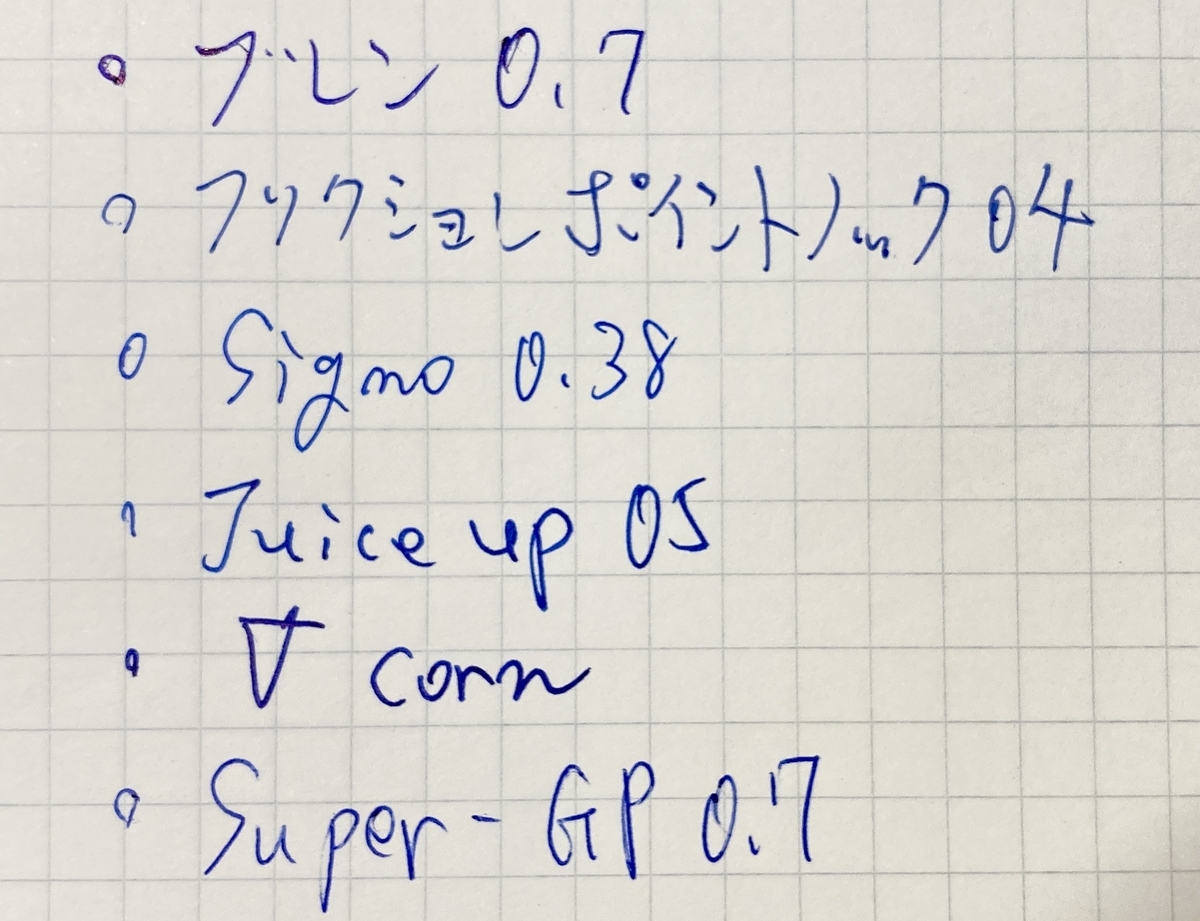 ブレン 0.7
フリクションポイントノック 04
Signo 0.38
Juice up 05
V corn
Super-GP 0.7